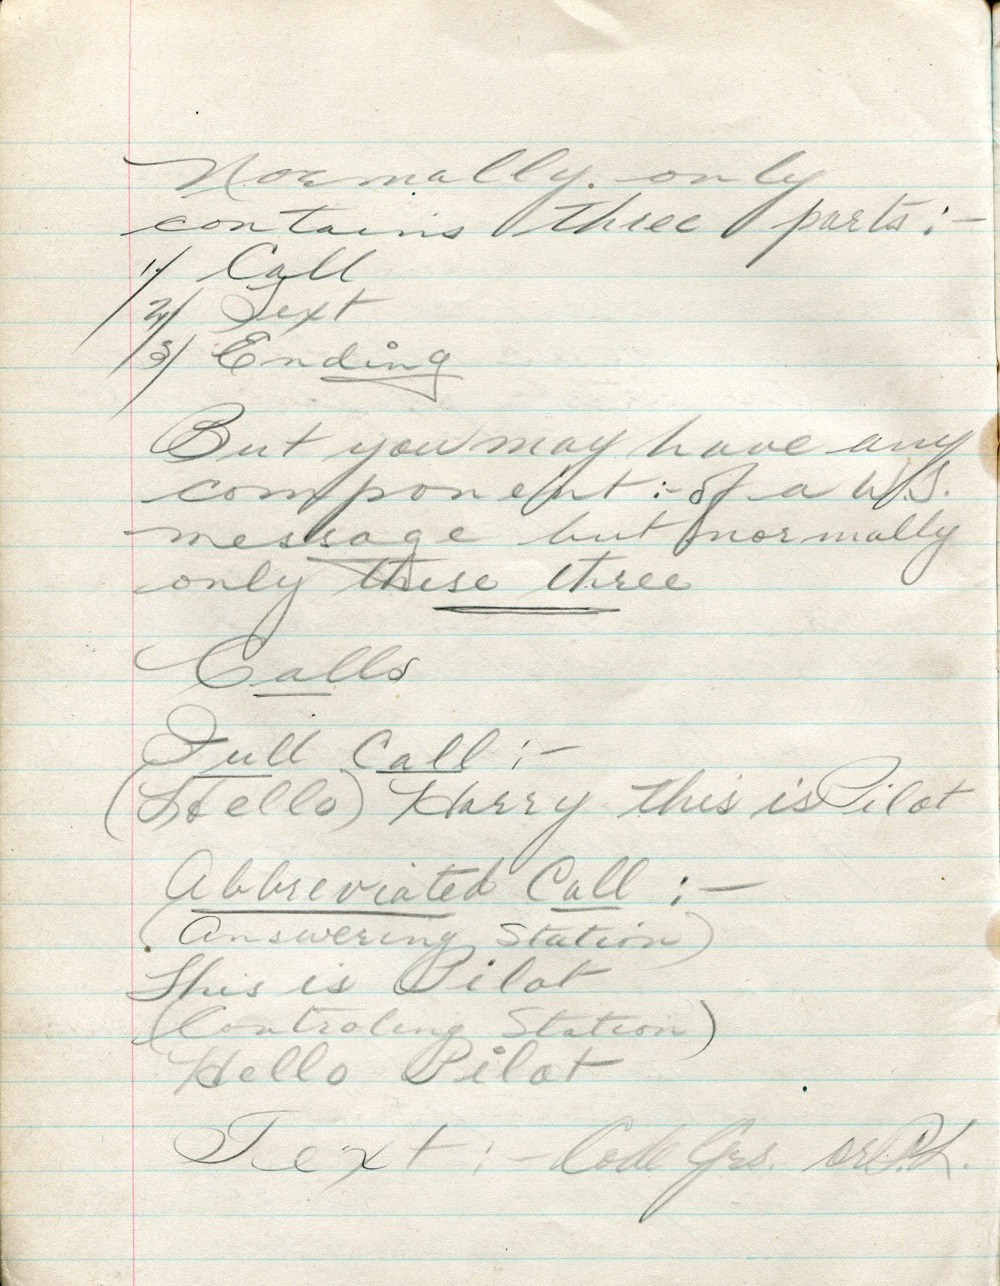 Normally only
contains three parts:-
1/ Call
2/ Text
3/ Ending
But you may have any
component:- of a W.S.
message but normally
only these three
Calls
Full Call :-
(Hello) Harry this is Pilot
Abbreviated Call :-
(Answering Station)
This is Pilot
(Controling Station)
Hello Pilot
Text :- Code Grs. or P.L.